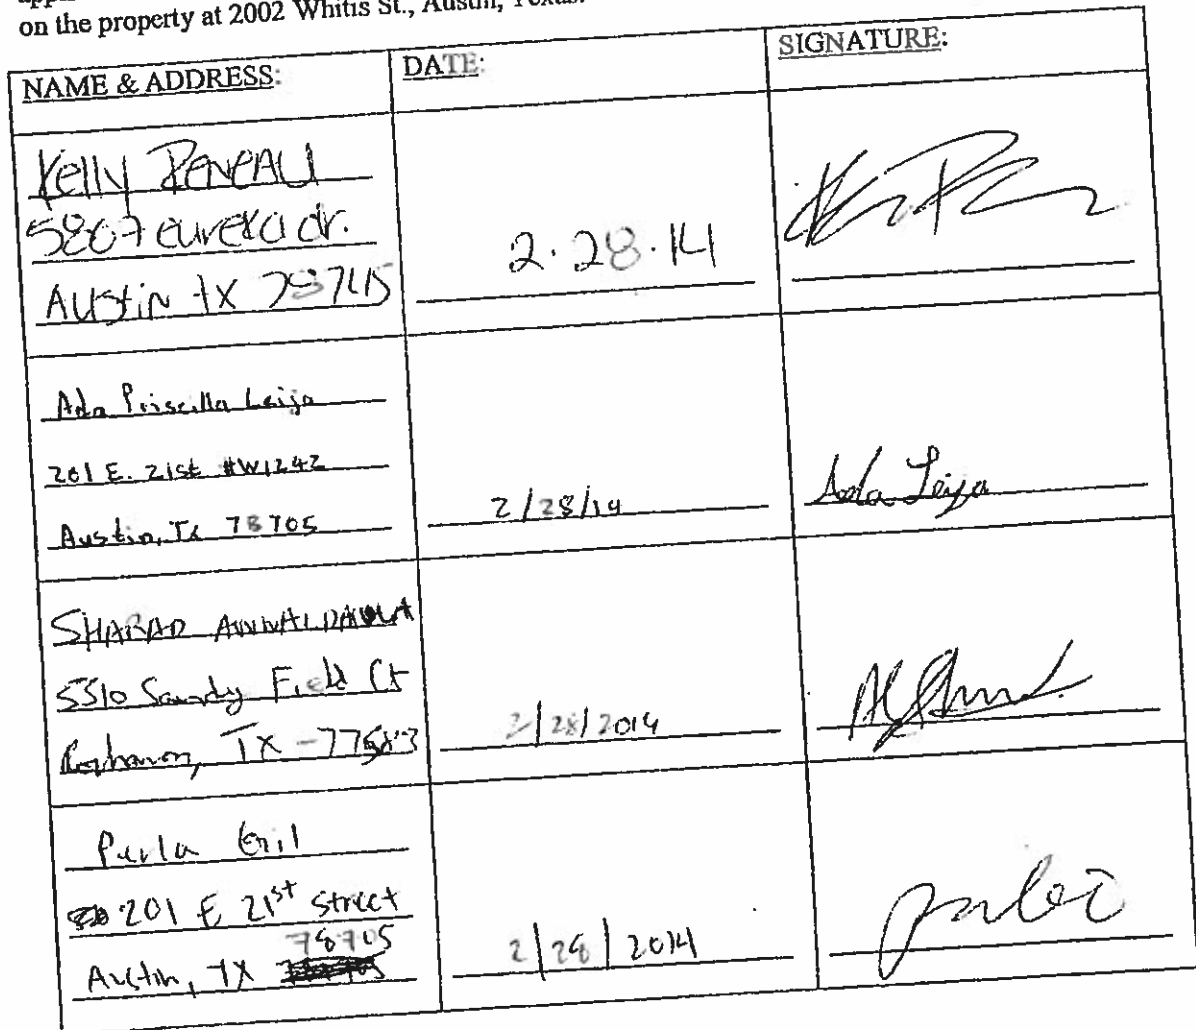 on the property at 2002 Whitis St., Austin, Texas.
NAME & ADDRESS: DATE: SIGNATURE:
Kelly RENEAU
5807 eureka dr.
Austin tx 78745
2.28.14
Ada Priscilla Leija
201 E. 21st #W1242
Austin, Tx 78705
2/28/14
Ada Leija
SHARAD
5510 Sandy Field Ct
Rosharon, TX - 77583
2/28/2014
Perla Gil
201 E 21st Street
78705
Austin, TX
2/28/2014